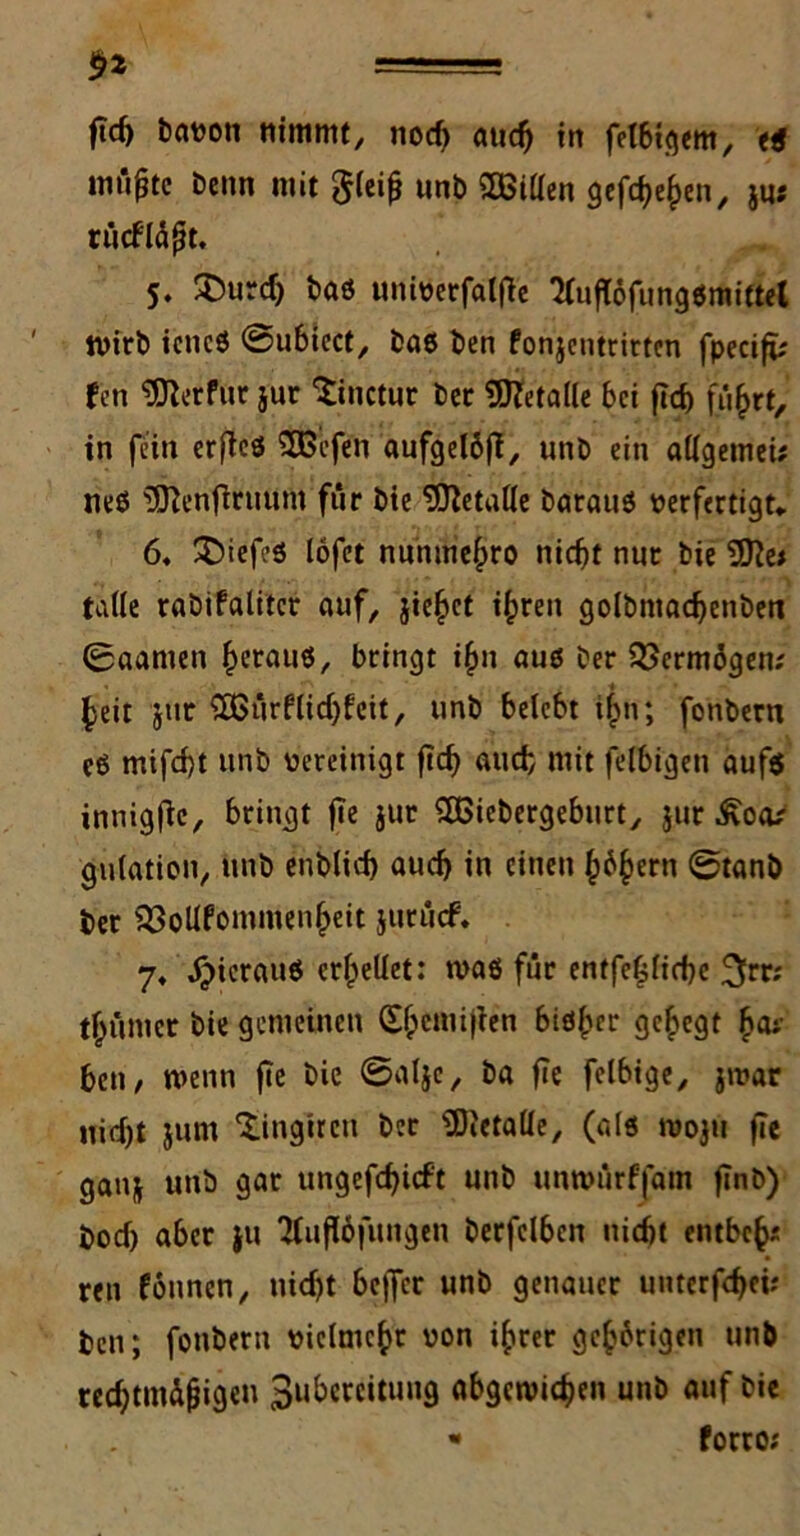 92
sich davon nimmt, noch auch in selbigem, es
müßte denn mit Fleiß und Willen geschehen, zu-
rückläßt.
5. Durch das universalste Auflösungsmittel
wird ienes Subiect, das den konzentrirten specifi-
ken Merkur zur Tinctur der Metalle bei sich führt,
in sein erstes Wesen aufgelößt, und ein allgemei-
nes Menstruum für die Metalle daraus verfertigt.
6. Dieses löset nunmehro nicht nur die Me-
talle radikaliter auf, ziehet ihren goldmachenden
Saamen heraus, bringt ihn aus der Vermögen-
heit zur Würklichkeit, und belebt ihn; sondern
es mischt und vereinigt sich auch mit selbigen aufs
innigste, bringt sie zur Wiedergeburt, zur Koa-
gulation, und endlich auch in einen höhern Stand
der Vollkommenheit zurück.
7. Hieraus erhellet: was für entsetzliche Irr-
thümer die gemeinen Chemisten bisher gehegt ha-
ben, wenn sie die Salze, da sie selbige, zwar
nicht zum Tingiren der Metalle, (als wozu sie
ganz und gar ungeschickt und unwürksam sind)
doch aber zu Auflösungen derselben nicht entbeh-
ren können, nicht besser und genauer unterschei-
den; sondern vielmehr von ihrer gehörigen und
rechtmäßigen Zubereitung abgewichen und auf die
korro-